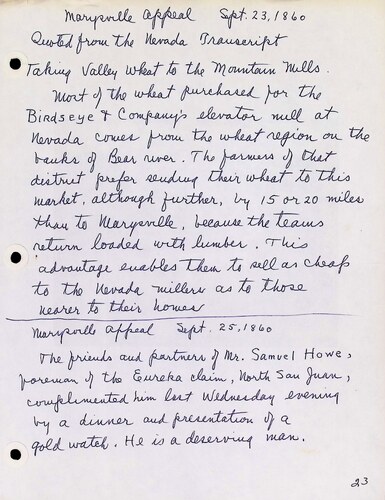 Marysville Appeal Sept. 23, 1860
Quoted from the Nevada Transcript
Taking Valley Wheat to the Mountain Mills.
Most of the wheat purchased for the
Birdseye & Company's elevator mill at
Nevada comes from the wheat region on the
banks of Bear river. The farmers of that
district prefer sending their wheat to this
market, although further, by 15 or 20 miles
than to Marysville, because the teams
return loaded with lumber. This
advantage enables them to sell as cheap
to the Nevada millers as to those
nearer to their homes
Marysville Appeal Sept. 25, 1860
The friends and partners of Mr. Samuel Howe,
foreman of the Eureka claim, North San Juan,
complimented him last Wednesday evening
by a dinner and presentation of a
gold watch. He is a deserving man.
23